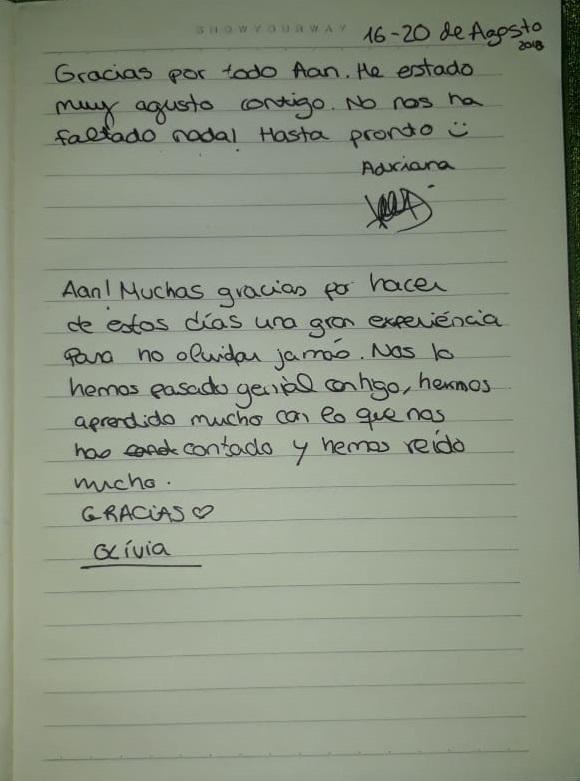 SHOWYOURWAY
16-20 de Agosto
2018
Gracias por todo Aan. He estado
muy agusto contigo. No nos ha
faltado nada! Hasta pronto :)
Adriana
Aan! Muchas gracias por hacer
de estos días una gran experiéncia
para no olvidar jamás. Nos lo
hemos pasado genial contigo, hemos
aprendido mucho con lo que nos
has contado y hemos reído
mucho.
GRACIAS ♡
Olívia